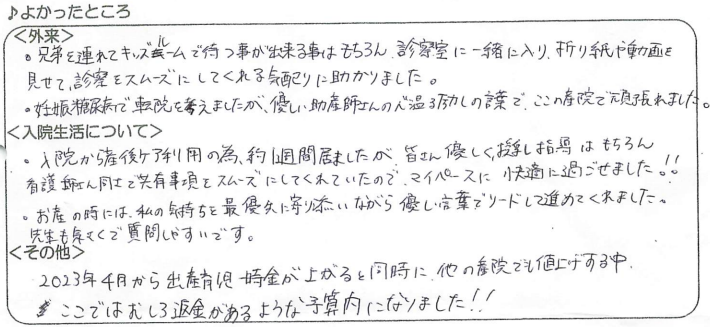 ♪よかったところ
<外来>
・兄弟を連れてキッズルームで待つ事が出来る事はもちろん、診察室に一緒に入り、折り紙や動画を
見せて、診察をスムーズにしてくれる気配りに助かりました。
・妊娠糖尿病で転院を考えましたが、優しい助産師さんの心温まる励しの言葉で、ここの産院で頑張れました。
<入院生活について>
・入院から産後ケア利用の為、約1週間居ましたが、皆さん優しく、授乳指導はもちろん
看護師さん同士で共有事項をスムーズにしてくれていたので、マイペースに快適に過ごせました!!
・お産の時には、私の気持ちを最優先に寄り添いながら優しい言葉でリードして進めてくれました。
先生も気さくで質問しやすいです。
<その他>
2023年4月から出産育児一時金が上がると同時に、他の産院でも値上げする中、
ここではむしろ返金があるような予算内になりました!!